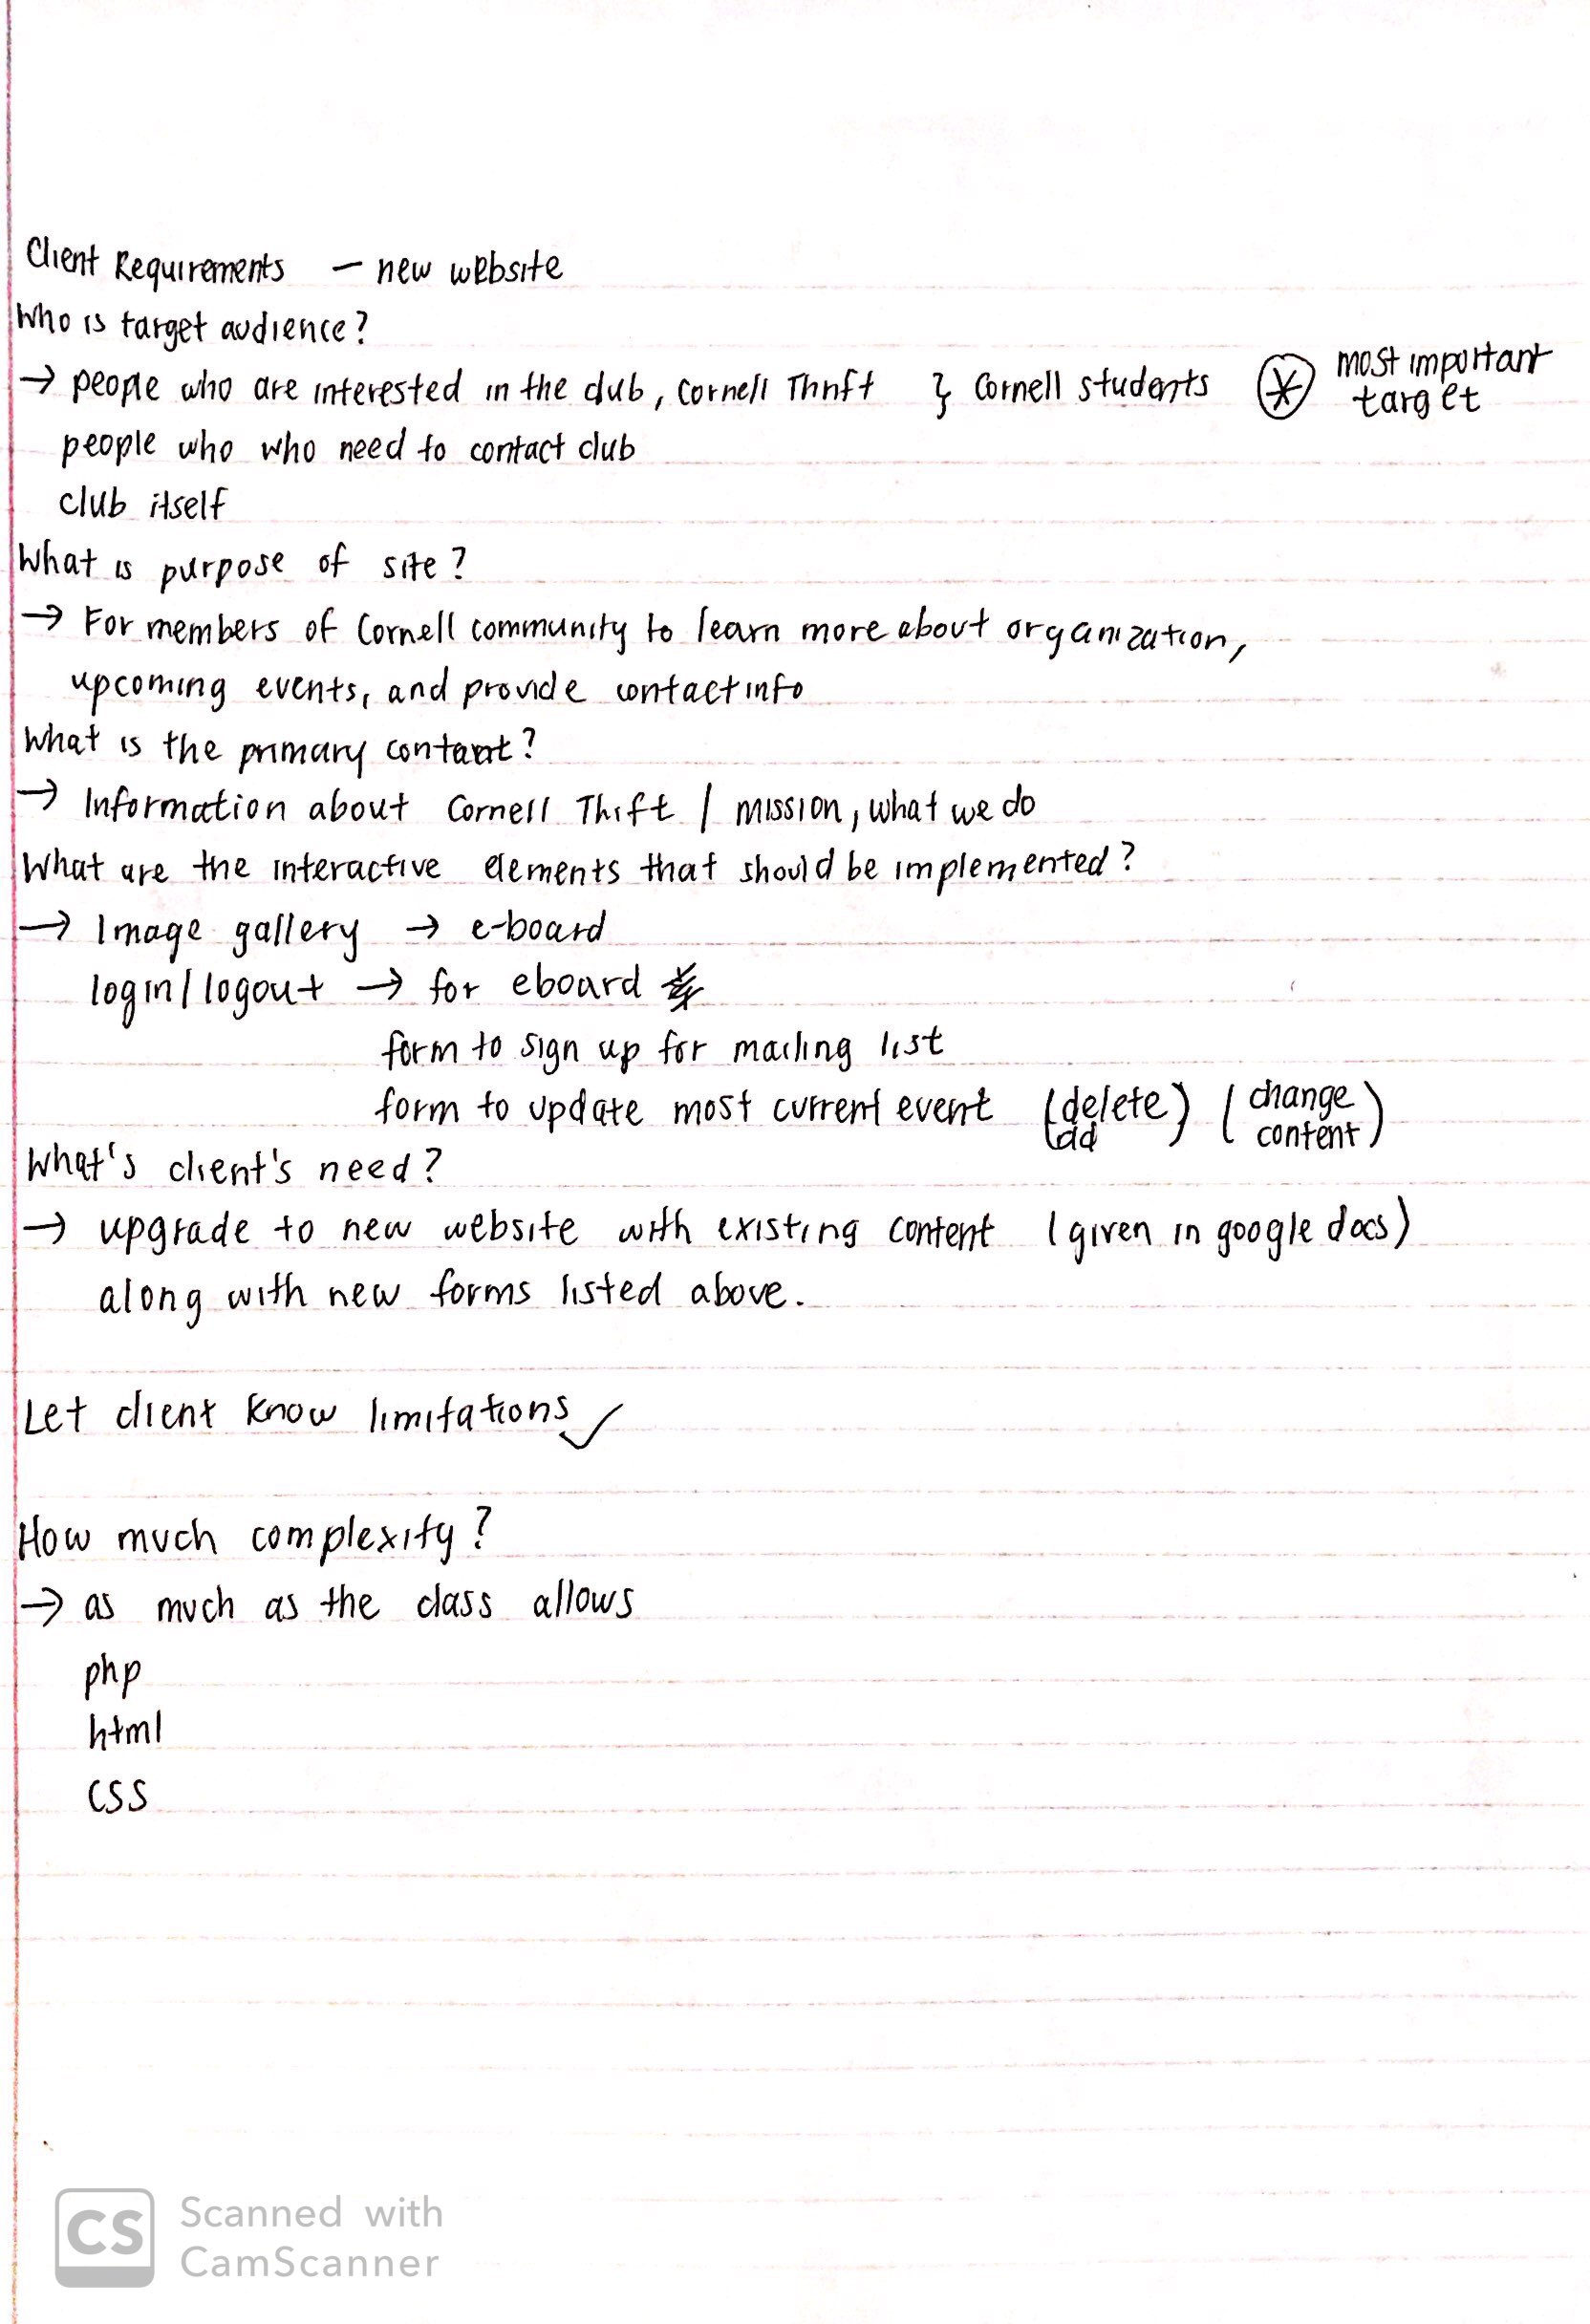 Client Requirements — new website
Who is target audience?
→ people who are interested in the club, Cornell Thrift } Cornell students ⊛ most important target
people who who need to contact club
club itself
What is purpose of site?
→ For members of Cornell community to learn more about organization,
upcoming events, and provide contact info
What is the primary content?
→ Information about Cornell Thift / mission, what we do
What are the interactive elements that should be implemented?
→ Image gallery → e-board
login/logout → for eboard
form to sign up for mailing list
form to update most current event (delete) (change content)
add
What's client's need?
→ upgrade to new website with existing content (given in google docs)
along with new forms listed above.
Let client know limitations ✓
How much complexity?
→ as much as the class allows
php
html
css
CS Scanned with
CamScanner